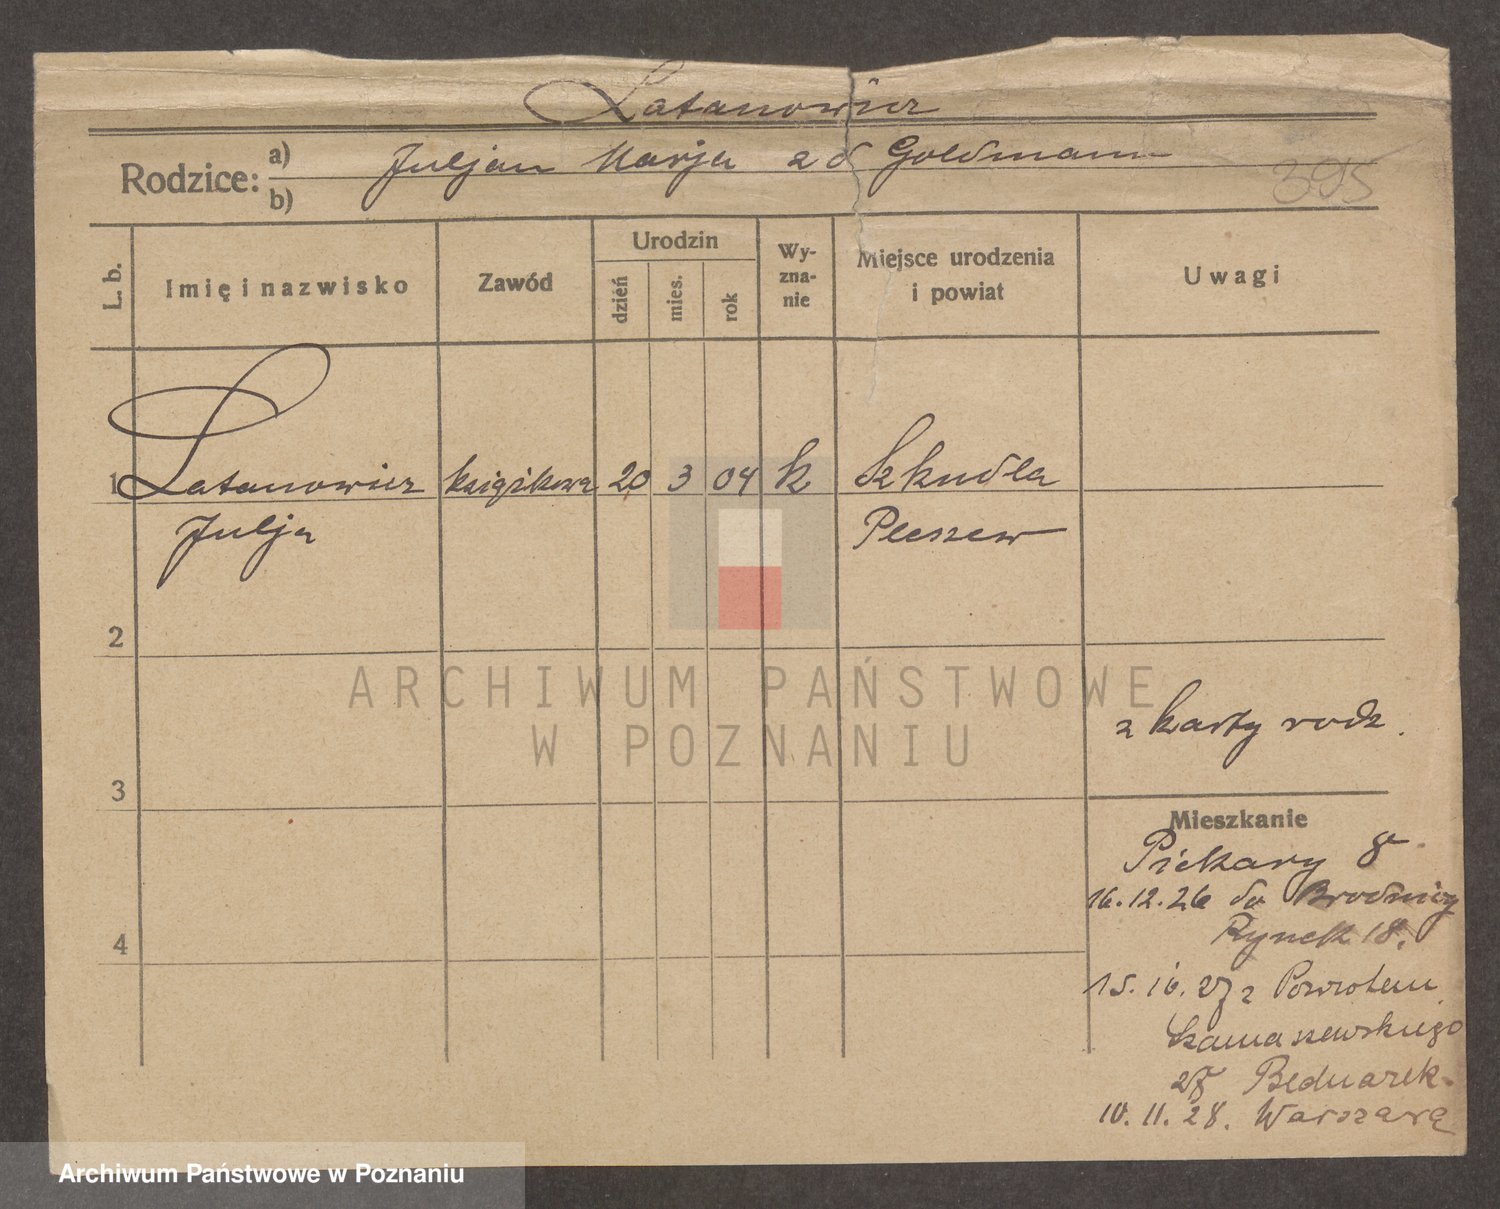 Latanowicz
Rodzice: a) Juljan Marja z d Goldmann
b)
395
L. b.
Imię i nazwisko
Zawód
Urodzin
dzień
mies.
rok
Wy-
zna-
nie
Miejsce urodzenia
i powiat
Uwagi
1 Latanowicz książkowa 20 3 04 k Szkudla
Julja Pleszew
2
z karty rodz.
3
Mieszkanie
Piekary 8
16.12.26 do Brodnicy
Rynek 18.
4
15.10.27 z Powrotem
27 Bednarek.
10.11.28. Warszawa
ARCHIWUM PAŃSTWOWE
W POZNANIU
Archiwum Państwowe w Poznaniu